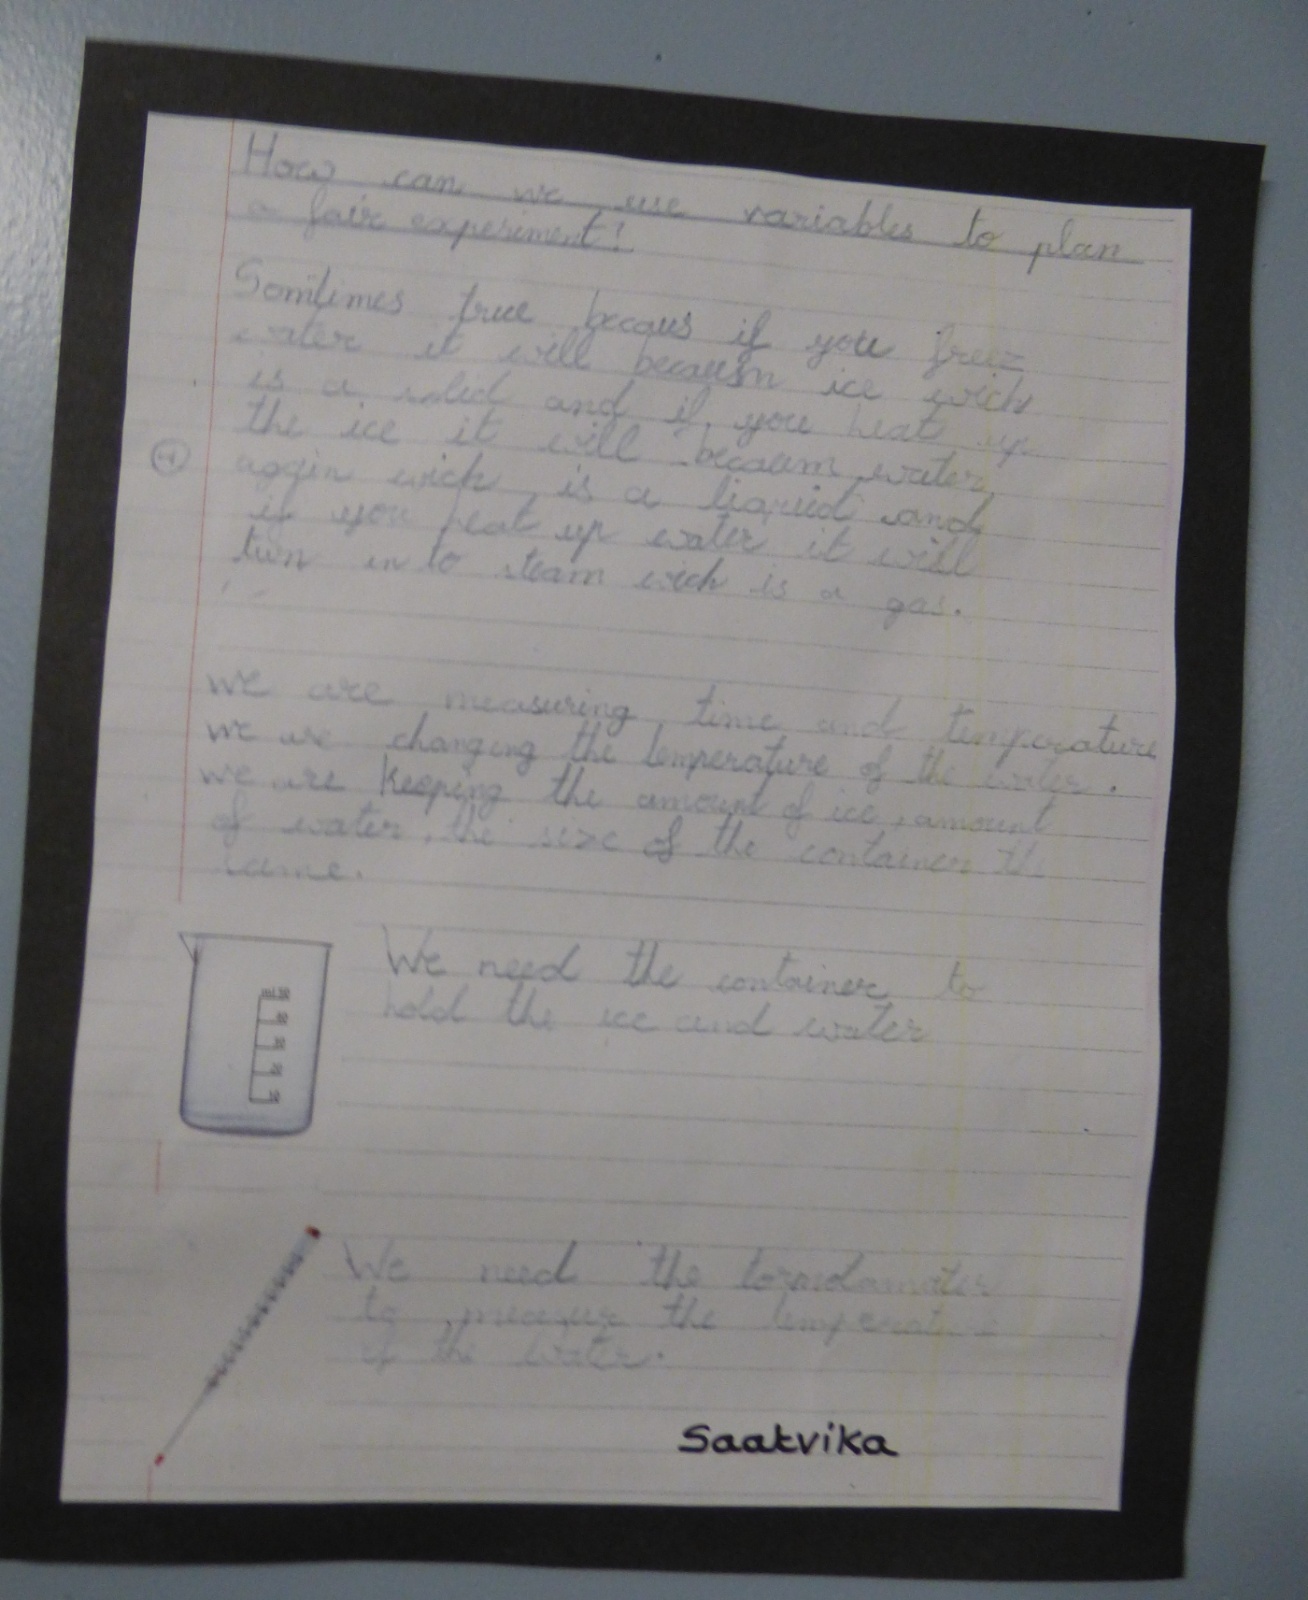 How can we use variables to plan
a fair experiment?
Somtimes true becaus if you freez
water it will becausm ice wich
is a solid and if you heat up
the ice it will becaum water
aggin wich is a liquid and
if you heat up water it will
turn in to steam wich is a gas.
we are measuring time and temperature
we are changing the temperature of the water.
we are keeping the amount of ice, amount
of water, the size of the container the
same.
We need the container to
hold the ice and water
We need the
to the temperature
of the water.
Saatvika